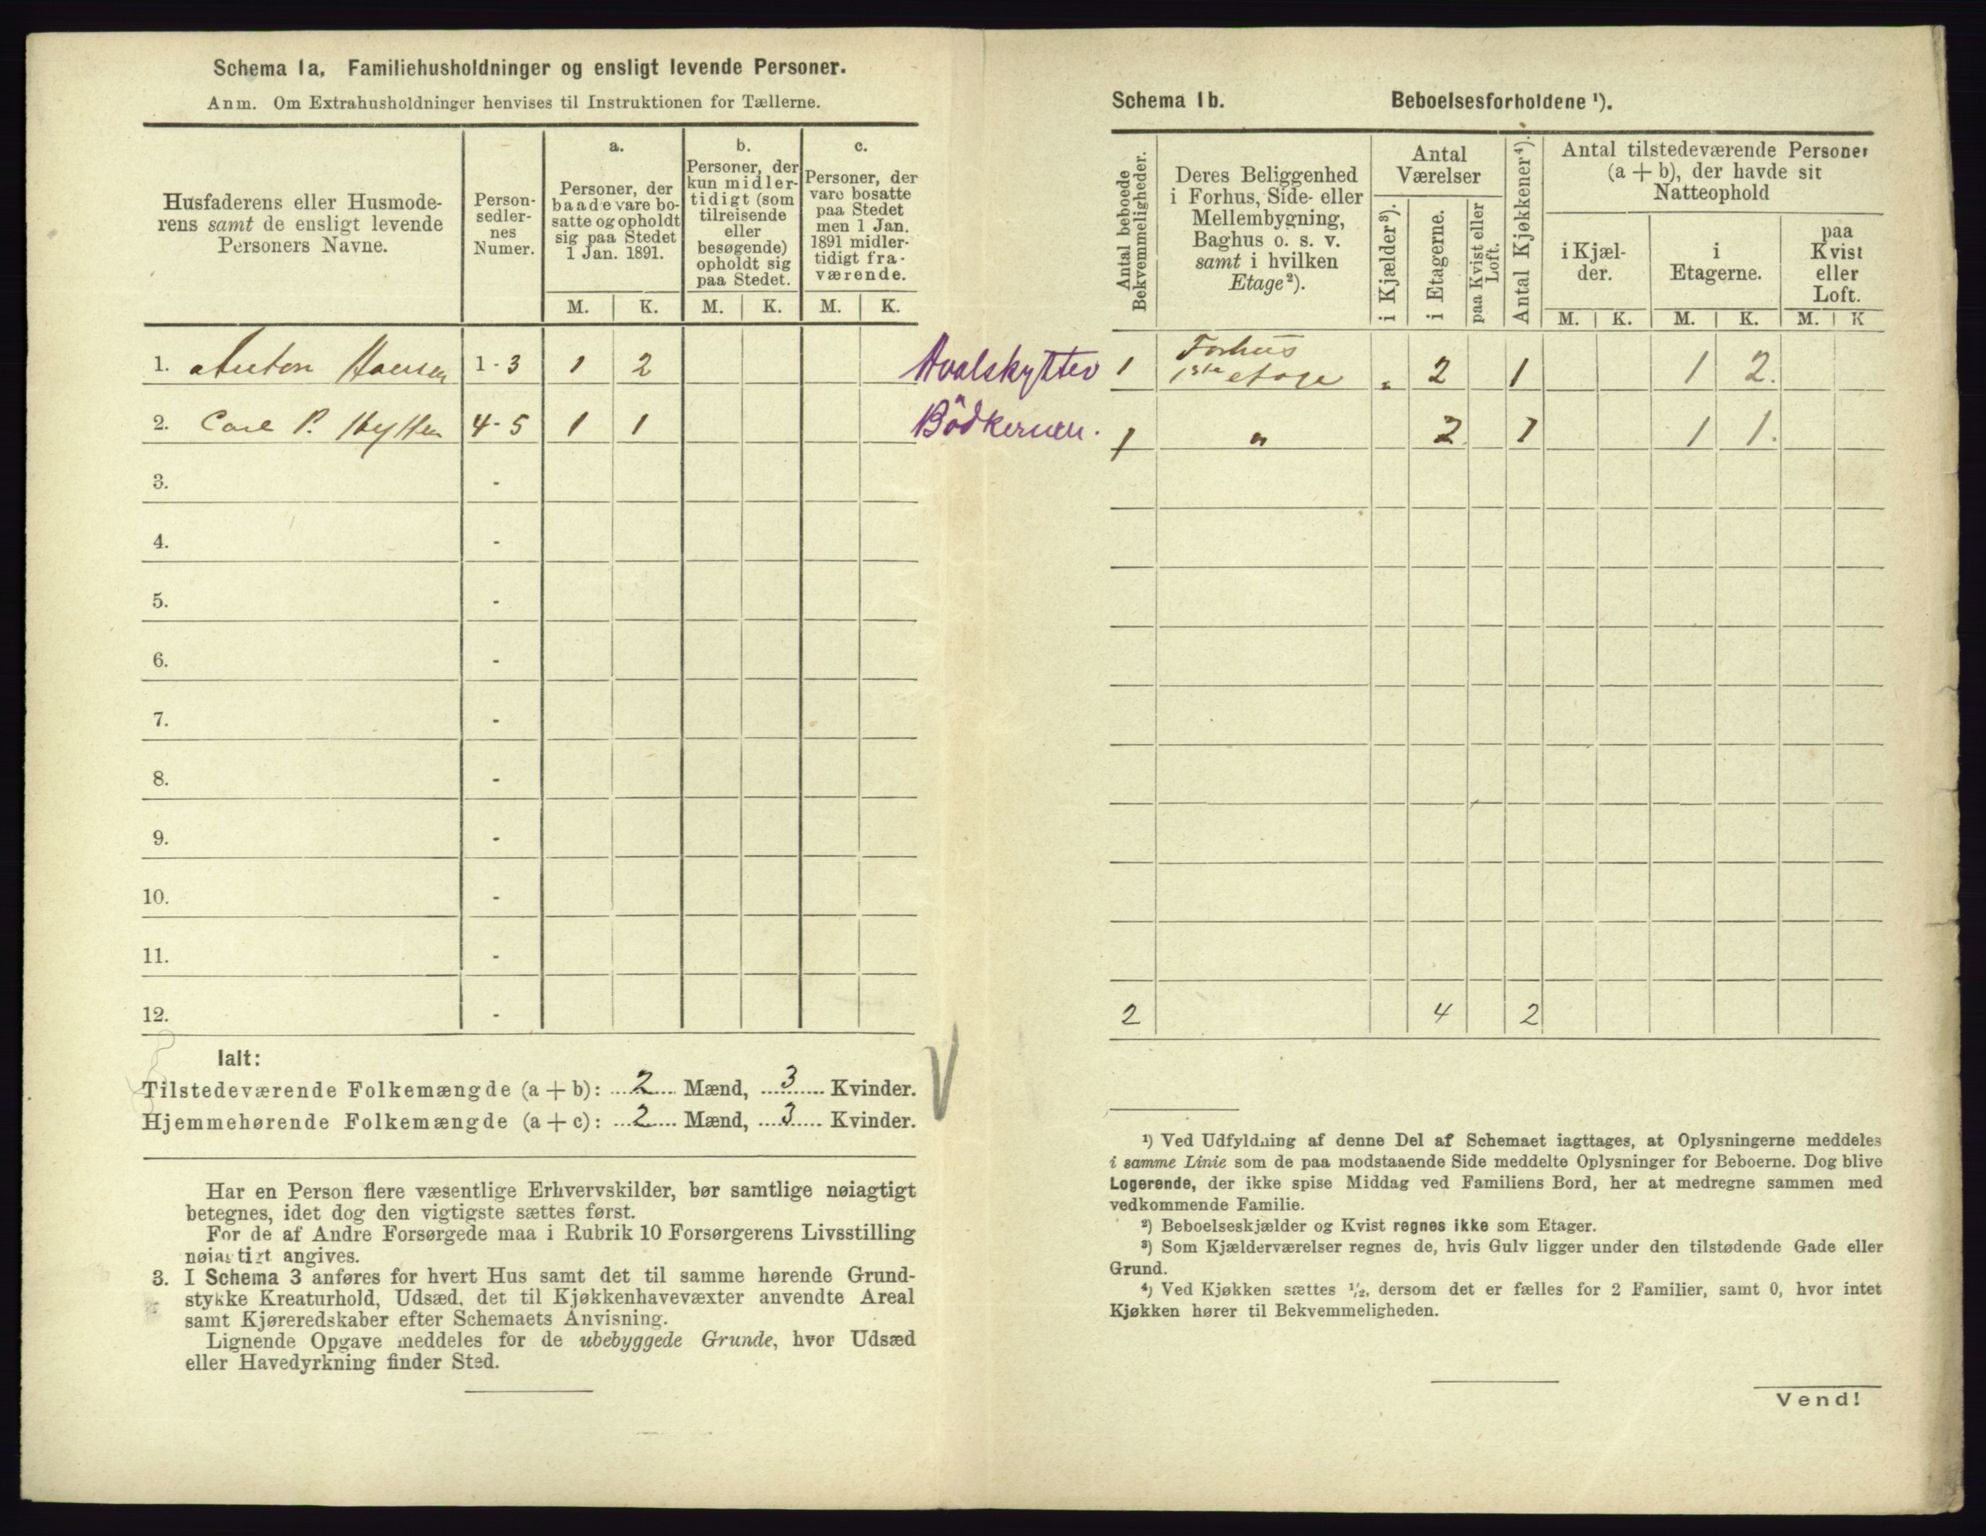 Schema 1a. Familiehusholdninger og ensligt levende Personer.
Anm. Om Extrahusholdninger henvises til Instruktionen for Tællerne.
Husfaderens eller Husmode-
rens samt de ensligt levende
Personers Navne.
Person-
sedler-
nes
Numer.
a.
Personer, der
baade vare bo-
satte og opholdt
sig paa Stedet
1 Jan. 1891.
b.
Personer, der
kun midler-
tidigt (som
tilreisende
eller
besøgende)
opholdt sig
paa Stedet.
c.
Personer, der
vare bosatte
paa Stedet
men 1 Jan.
1891 midler-
tidigt fra-
værende.
M. K. M. K. M. K.
1. Anton Hansen 1-3 1 2
2. Carl P. 4-5 1 1
3. -
4. -
5. -
6. -
7. -
8. -
9. -
10. -
11. -
12. -
Ialt:
Tilstedeværende Folkemængde (a + b): 2 Mænd, 3 Kvinder.
Hjemmehørende Folkemængde (a + c): 2 Mænd, 3 Kvinder.
Har en Person flere væsentlige Erhvervskilder, bør samtlige nøiagtigt
betegnes, idet dog den vigtigste sættes først.
For de af Andre Forsørgede maa i Rubrik 10 Forsørgerens Livsstilling
nøiagtigt angives.
3. I Schema 3 anføres for hvert Hus samt det til samme hørende Grund-
stykke Kreaturhold, Udsæd, det til Kjøkkenhavevæxter anvendte Areal
samt Kjøreredskaber efter Schemaets Anvisning.
Lignende Opgave meddeles for de ubebyggede Grunde, hvor Udsæd
eller Havedyrkning finder Sted.
Hvalskytter
Bödkersven.
Schema 1b. Beboelsesforholdene ¹).
Antal beboede
Bekvemmeligheder.
Deres Beliggenhed
i Forhus, Side- eller
Mellembygning,
Baghus o. s. v.
samt i hvilken
Etage²).
Antal
Værelser
i Kjælder³).
i Etagerne.
paa Kvist eller
Loft.
Antal Kjøkkener⁴).
Antal tilstedeværende Personer
(a + b), der havde sit
Natteophold
i Kjæl-
der.
i
Etagerne.
paa
Kvist
eller
Loft.
M. K. M. K. M. K
1 Forhus
1ste etage „ 2 1 1 2.
1 „ 2 1 1 1.
2 4 2
¹) Ved Udfyldning af denne Del af Schemaet iagttages, at Oplysningerne meddeles
i samme Linie som de paa modstaaende Side meddelte Oplysninger for Beboerne. Dog blive
Logerende, der ikke spise Middag ved Familiens Bord, her at medregne sammen med
vedkommende Familie.
²) Beboelseskjælder og Kvist regnes ikke som Etager.
³) Som Kjælderværelser regnes de, hvis Gulv ligger under den tilstødende Gade eller
Grund.
⁴) Ved Kjøkken sættes ½, dersom det er fælles for 2 Familier, samt 0, hvor intet
Kjøkken hører til Bekvemmeligheden.
Vend!